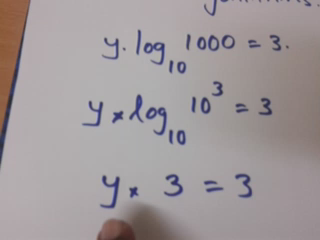 y. log₁₀ 1000 = 3.
y × log₁₀ 10³ = 3
y × 3 = 3